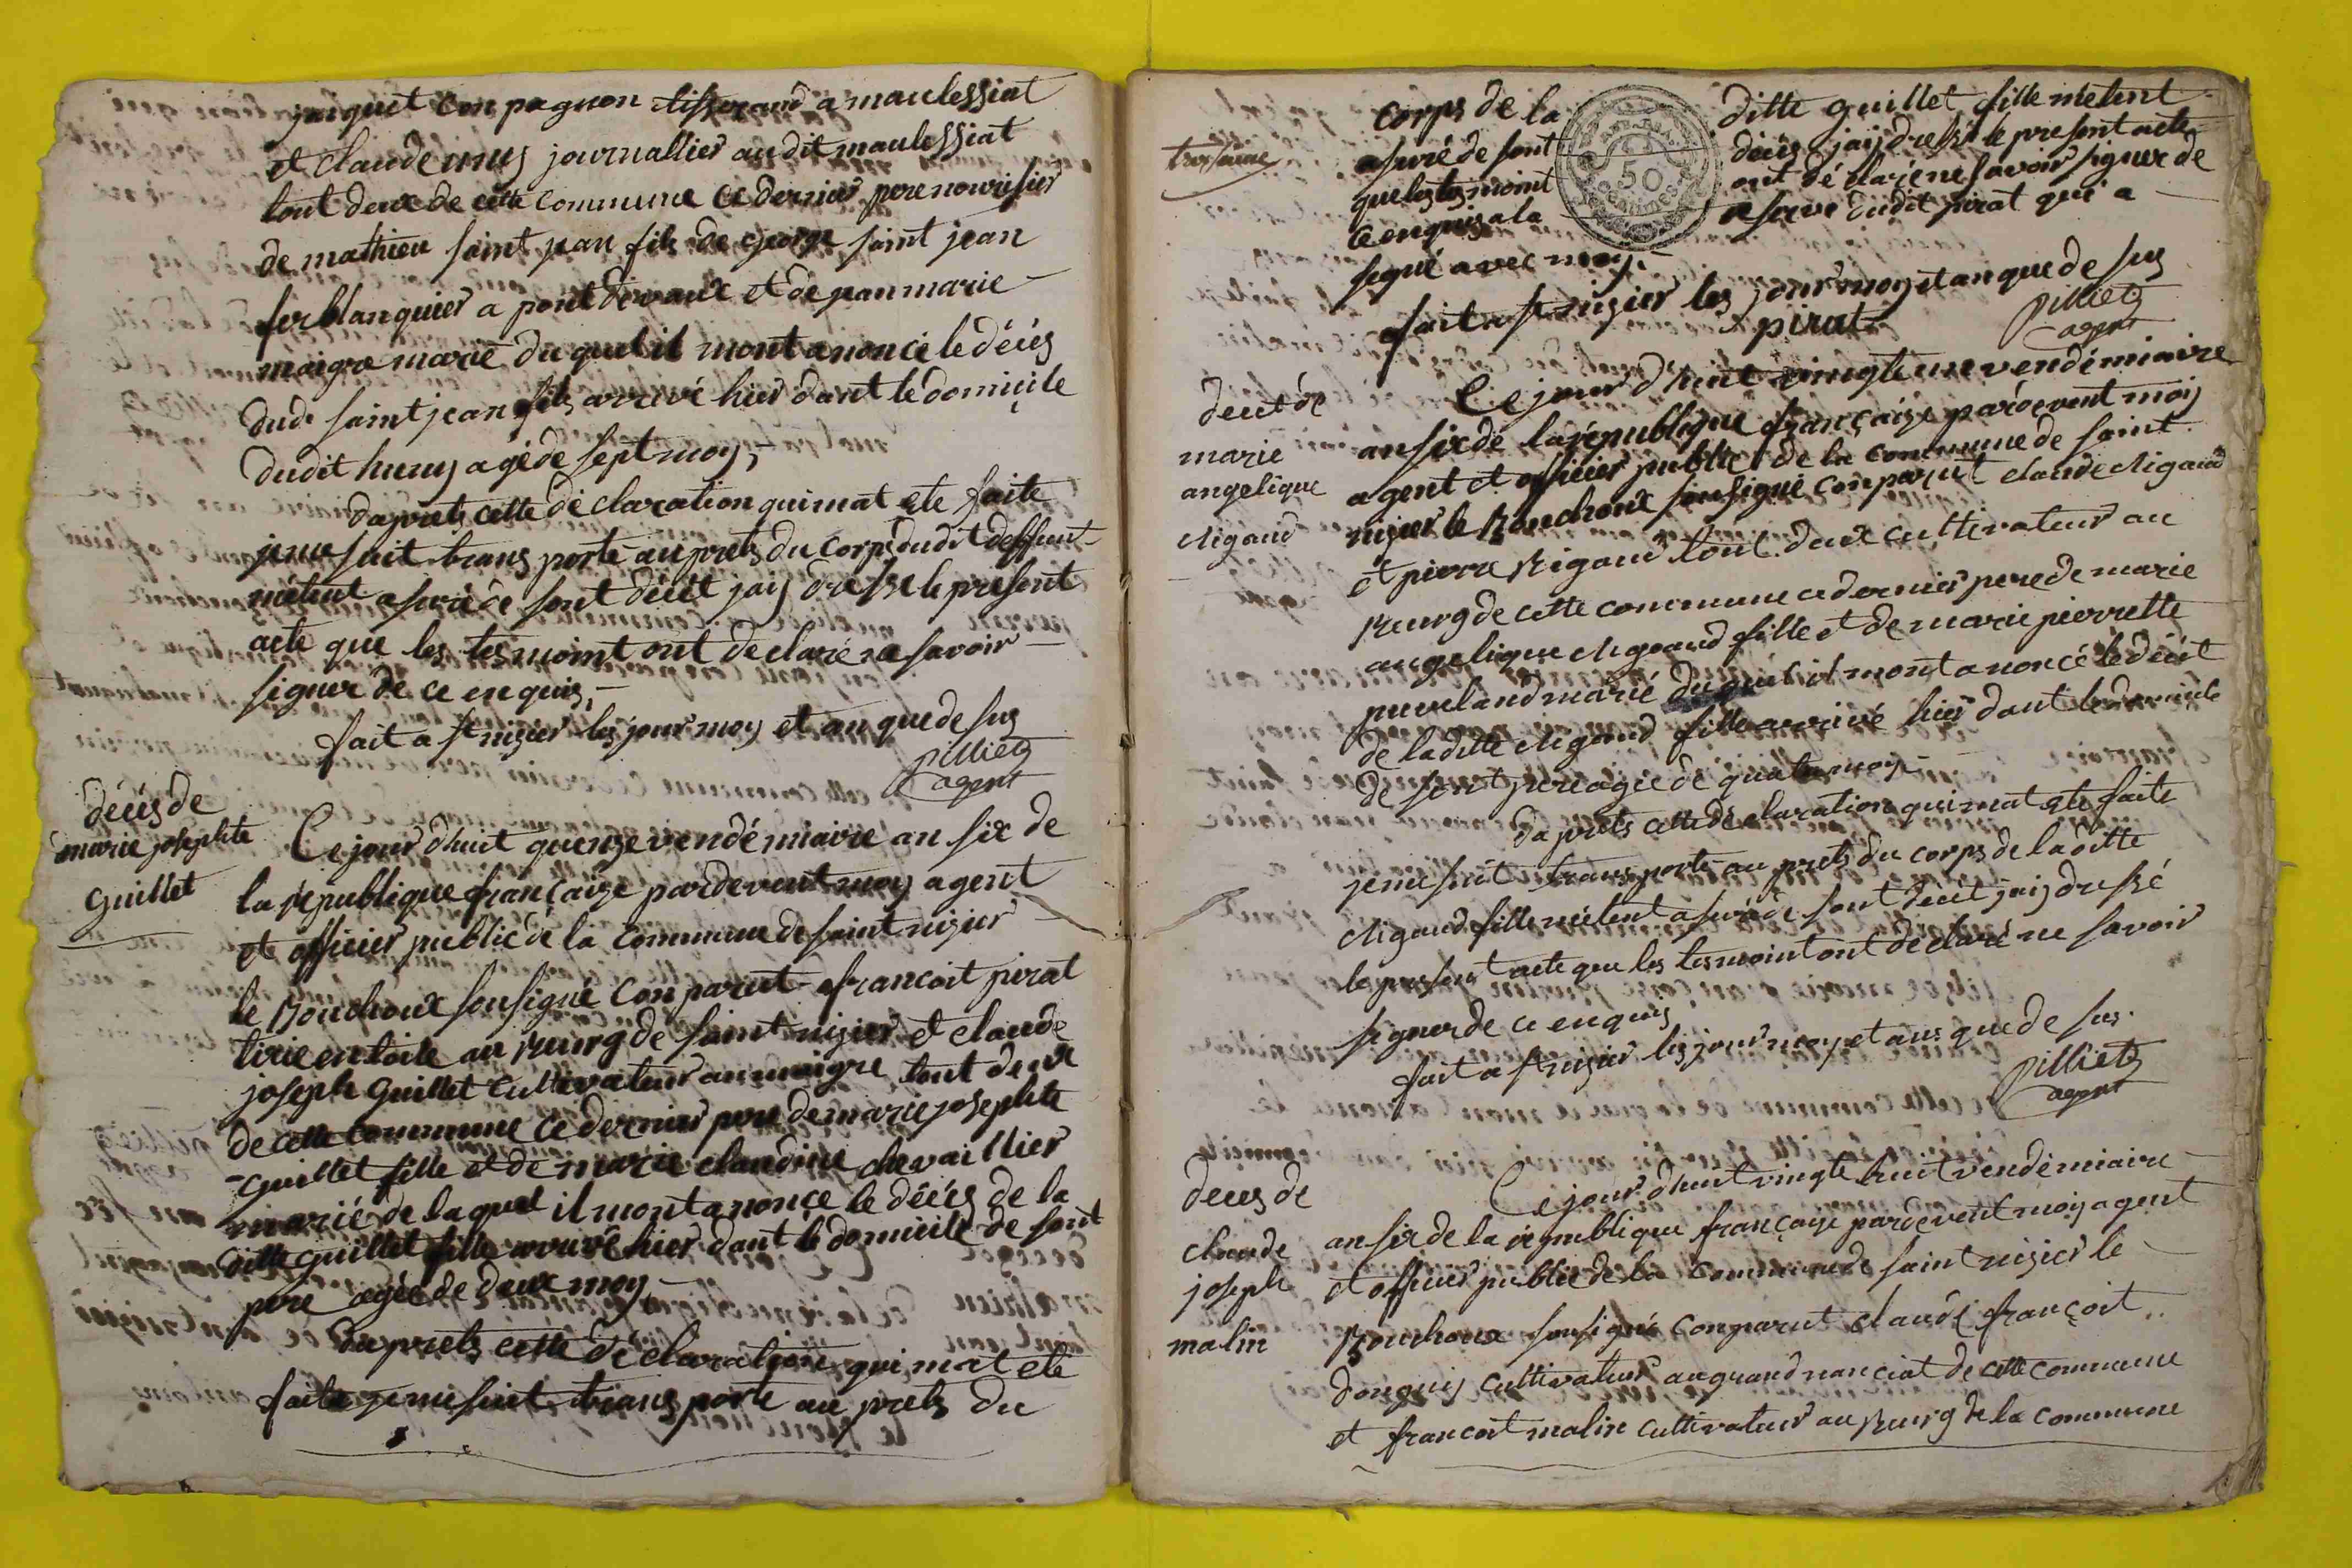 jaquet conpagnon tisserand a maulessiat
et claude huny journallier audit maulessiat
tout deux de cette commune ce dernier pere nourisier
de mathieu saint jean fils de george saint jean
ferblanquier a pont devaux et de jean marie
maigre marié du quel il mont anoncé le décés
dudt saint jean fils arrivé hier dant le domicile
dudit huny agé de sept moy,
daprets cette déclaration qui mat ete faite
je me suit transporté au prets du corps dudit deffunt
mètent asuré de sont décét jaij dressé le présent
acte que les tesmoint ont déclaré ne savoir
signer de ce enquis,
fait a st nizier les jour moy et an que de sus
pilliet
agent
décés de
marie josephte
guillet
Ce jour dhuit quenze vendémiaire an six de
la république françaize pardevent moy agent
et officier public de la commune de saint nizier
le Bouchoux sousigné conparut francoit pirat
tirie en toile au Bourg de saint nizier et claude
joseph guillet cultivateur au maigre tout deux
de cette commune ce dernier pere de marie josephte
guillet fille et de marie claudine chevaillier
marié de laquel il mont anonce le décés de la
ditte guillet fille arrivé hier dant le domicile de sont
pere agée de deux moy
daprets cette déclaration qui mat eté
faite je me suit transporté au prets du
corps de la ditte guillet fille mètent
asuré de sont décés jaij dressé le present acte
que les tesmoint ont déclaré ne savoir signer de
ce enquis a la reserve dudit pirat qui a
signé avec moy
fait a st nizier les jour moy et an que de sus
pirat
pilliet
agent
décét de
marie
angelique
Rigaud
Ce jour dhuit vingte une vendémiaire
an six de la république françaize pardevent moij
agent et officier public de la commune de saint
nizier le Bouchoux sousigné conparut claude Rigaud
et pierre Rigaud tout deux cultivateur au
Bourg de cette commune ce dernier pere de marie
angelique Rigaud fille et de marie pierrette
marié du quel il mont anoncé le décét
de laditte Rigaud fille arrivé hier dant le domicile
de sont pere agée de quatre moy
daprets cette déclaration qui mat ete faite
je me suit transporté au prets du corps de laditte
Rigaud fille mètent asuré de sont décét jaij dressé
le present acte que les tesmoint ont déclaré ne savoir
signer de ce enquis
fait a st nizier les jour moy et ans que de sus.
pilliet
agent
deces de
claude
joseph
malin
Ce jour dhuit vingte huit vendémiaire
an six de la république françaize pardevent moij agent
et officier public de la commune de saint nizier le
Bouchoux sousigné conparut claude françoit
donguy cultivateur au grand nanciat de cette commune
et francoit malin cultivateur au Bourg de la commune
50
centimes